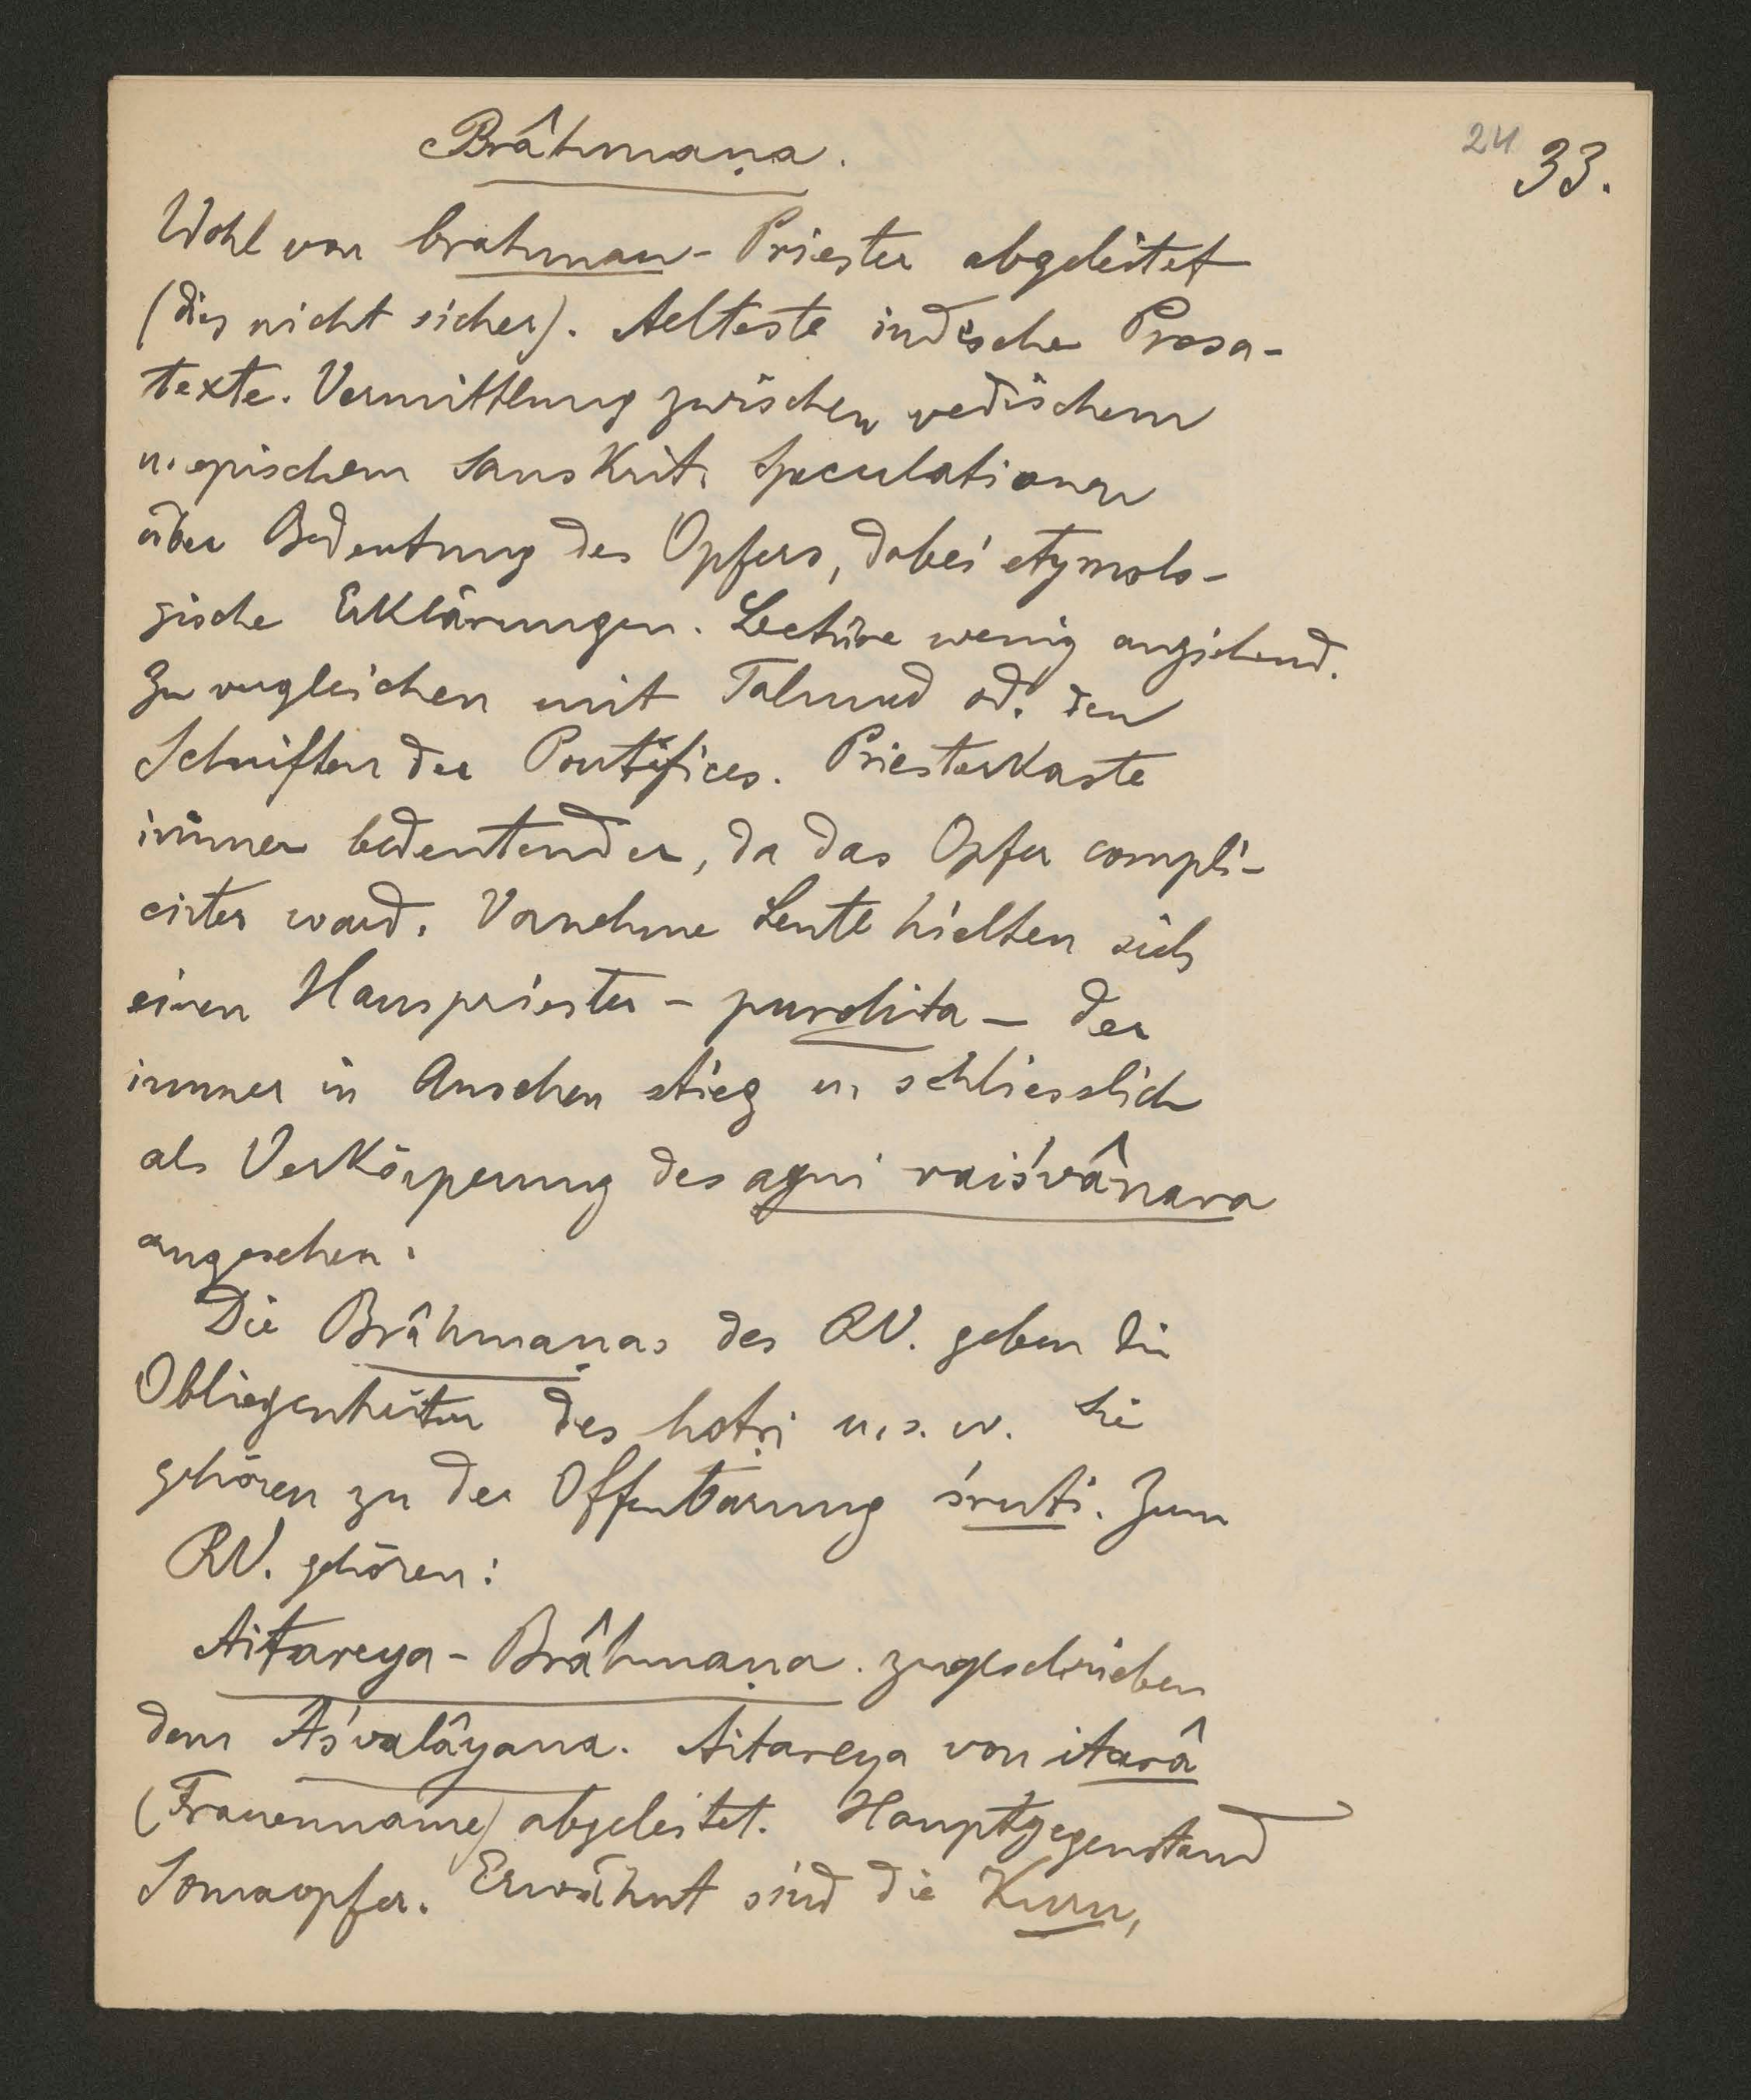 Brâhmaṇa.
24 33.
Wohl von brahman- Priester abgeleitet
(dies nicht sicher). Aelteste indische Prosa-
texte. Vermittlung zwischen vedischem
u. epischem Sanskrit. Speculationen
über Bedeutung des Opfers, dabei etymolo-
gische Erklärungen. Lectüre wenig anziehend.
Zu vergleichen mit Talmud od. den
Schriften der Pontifices. Priesterkaste
immer bedeutender, da das Opfer compli-
cirter ward. Vornehme Leute hielten sich
einen Hauspriester - purohita - der
immer in Ansehen stieg u. schliesslich
als Verkörperung des agni vaiśvânara
angesehen.
Die Brâhmaṇas des RV. geben die
Obliegenheiten des hotṛi u. s. w. Sie
gehören zu der Offenbarung śruti. Zum
RV. gehören:
Aitareya - Brâhmaṇa. zugeschrieben
dem Aśvalâyana. Aitareya von itarâ
(Frauenname) abgeleitet. Hauptgegenstand
Somaopfer. Erwähnt sind die Kuru,